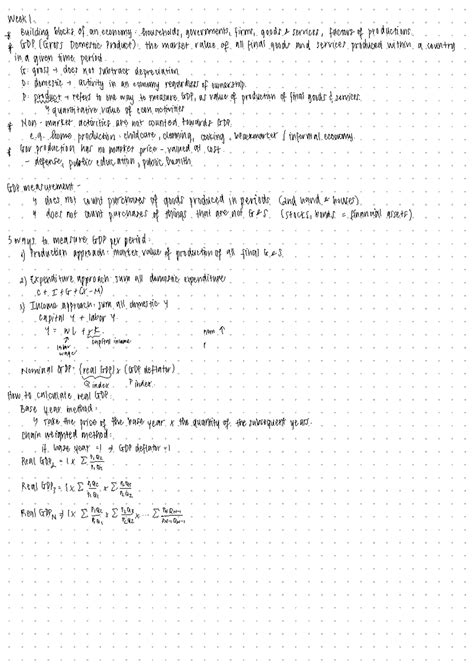 Week 1.
* Building blocks of an economy: households, governments, firms, goods & services, factors of productions.
* GDP (Gross Domestic Product): the market value of all final goods and services produced within a country
in a given time period.
G: gross → does not subtract depreciation
D: domestic → activity in an economy regardless of ownership.
P: product → refers to one way to measure GDP, as value of production of final goods & services.
↳ quantitative value of econ activities
* Non-market activities are not counted towards GDP.
e.g. home production: childcare, cleaning, cooking, blackmarket / informal economy.
* Gov production has no market price - valued at cost.
- defense, public education, public health.
GDP measurement -
↳ does not count purchases of goods produced in periods (2nd hand & houses).
↳ does not count purchases of things that are not G&S. (stocks, bonds = financial assets).
3 ways to measure GDP per period:
1) Production approach: market value of production of all final G&S.
2) Expenditure approach: sum all domestic expenditure
C + I + G + (X-M)
3) Income approach: sum all domestic Y
capital Y + labor Y.
Y = wL + rK. nom ↑
labor capital income
wage
Nominal GDP = (real GDP) x (GDP deflator)
Q index. P index.
How to calculate real GDP.
Base year method:
↳ take the price of the base year x the quantity of the subsequent years.
Chain weighted method:
if base year = 1 → GDP deflator = 1
Real GDP₂ = 1 x Σ P₁Q₂ / P₁Q₁
Real GDP₃ = 1 x Σ P₁Q₂ / P₁Q₁ x Σ P₂Q₃ / P₂Q₂